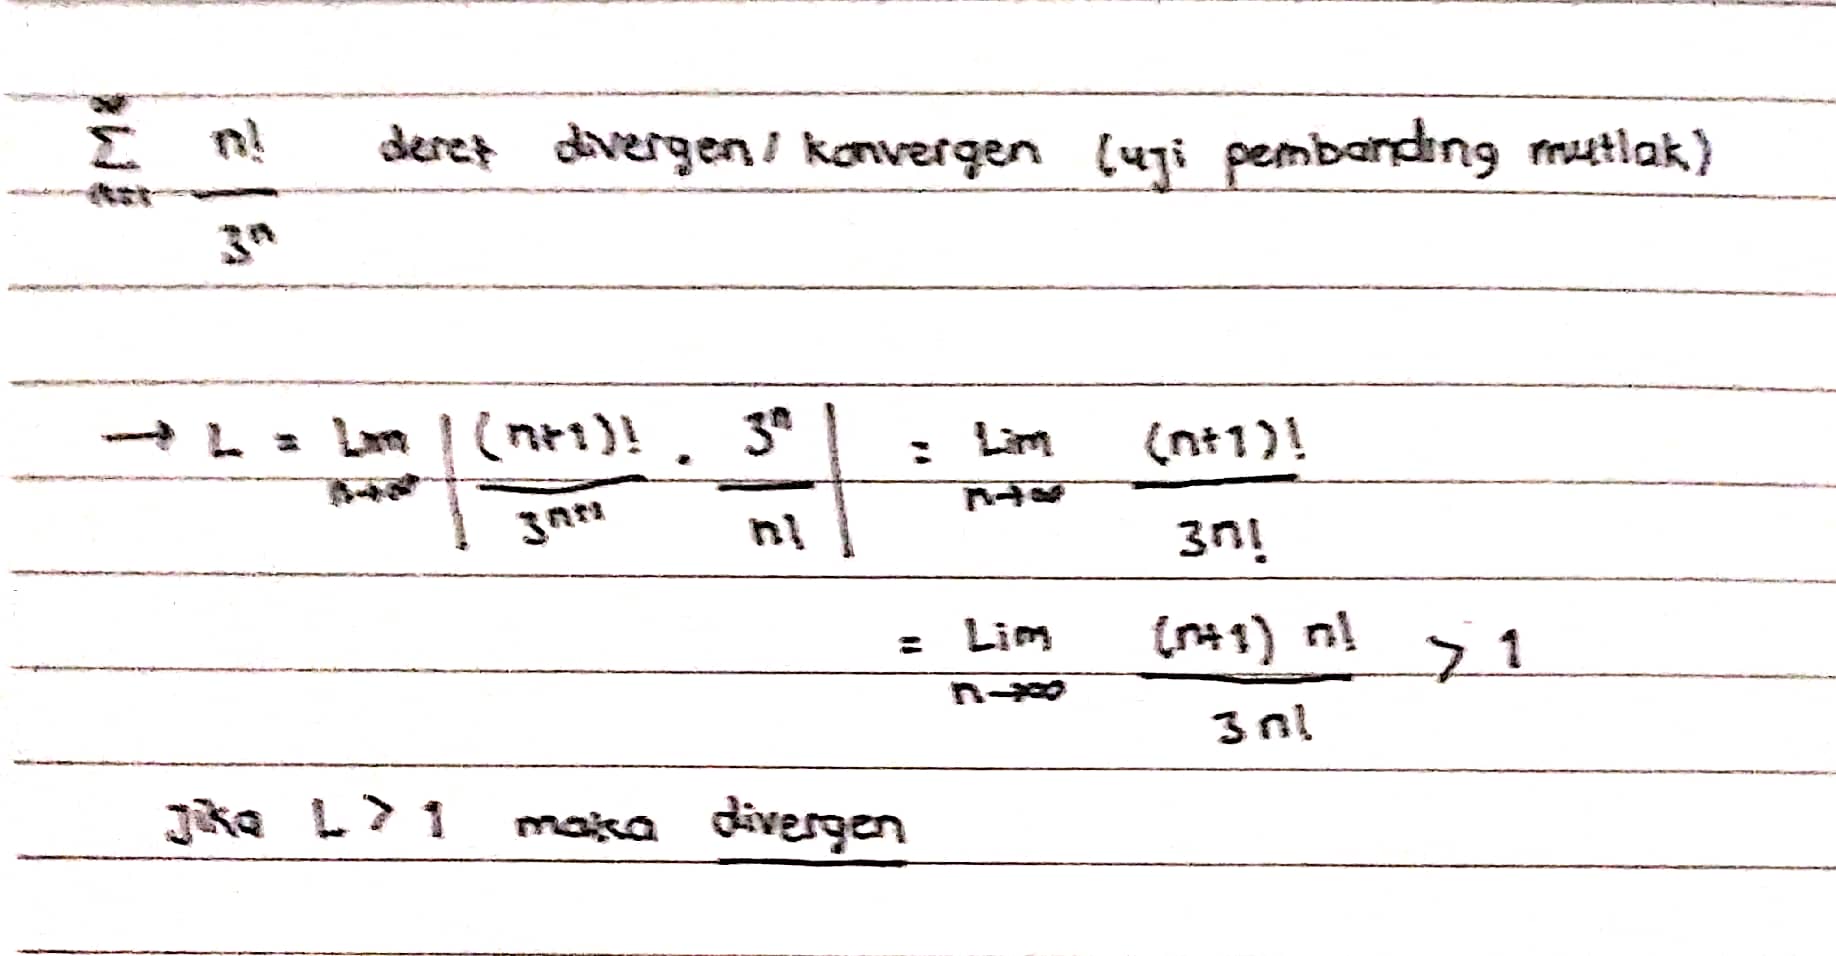 ∞
Σ n! deret divergen / konvergen (uji pembanding mutlak)
n=1 3ⁿ
→ L = Lim | (n+1)! . 3ⁿ | = Lim (n+1)!
n→∞ 3ⁿ⁺¹ n! n→∞ 3n!
= Lim (n+1) n! > 1
n→∞ 3n!
Jika L > 1 maka divergen